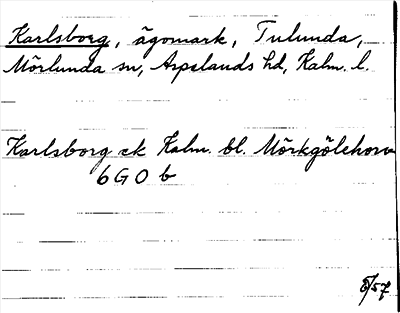 Karlsborg, ägomark, Tulunda,
Mörlunda sn, Aspelands hd, Kalm. l.
Karlsborg ek Kalm. bl. Mörkgölehorva
6 G 0 b
8/57